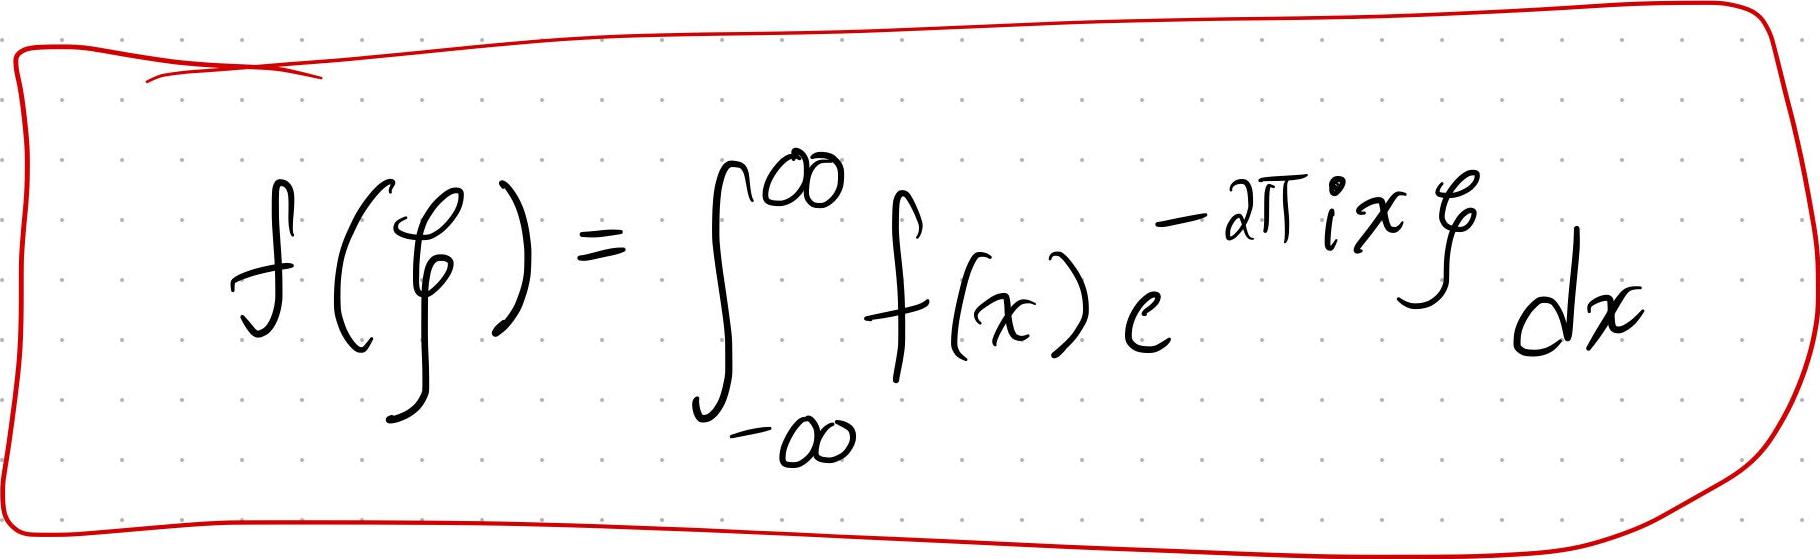 f(ξ) = ∫_{-∞}^{∞} f(x) e^{-2πixξ} dx